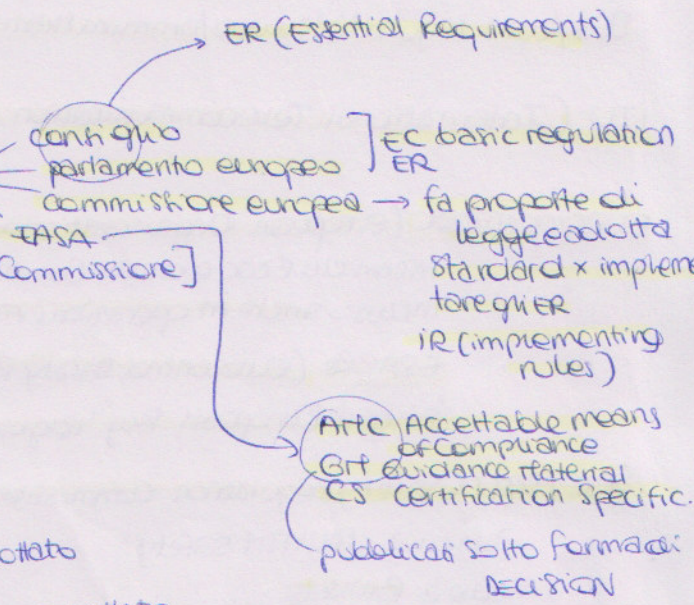 ER (Essential Requirements)
consiglio
parlamento europeo ] EC basic regulation
ER
commissione europea → fa proposte di
legge e adotta
EASA
Commissione]
standard x impleme
tare gli ER
IR (implementing
rules)
AMC Accettable means
of compliance
GM Guidance Material
CS Certification Specific.
pubblicati sotto forma di
DECISION
ottato